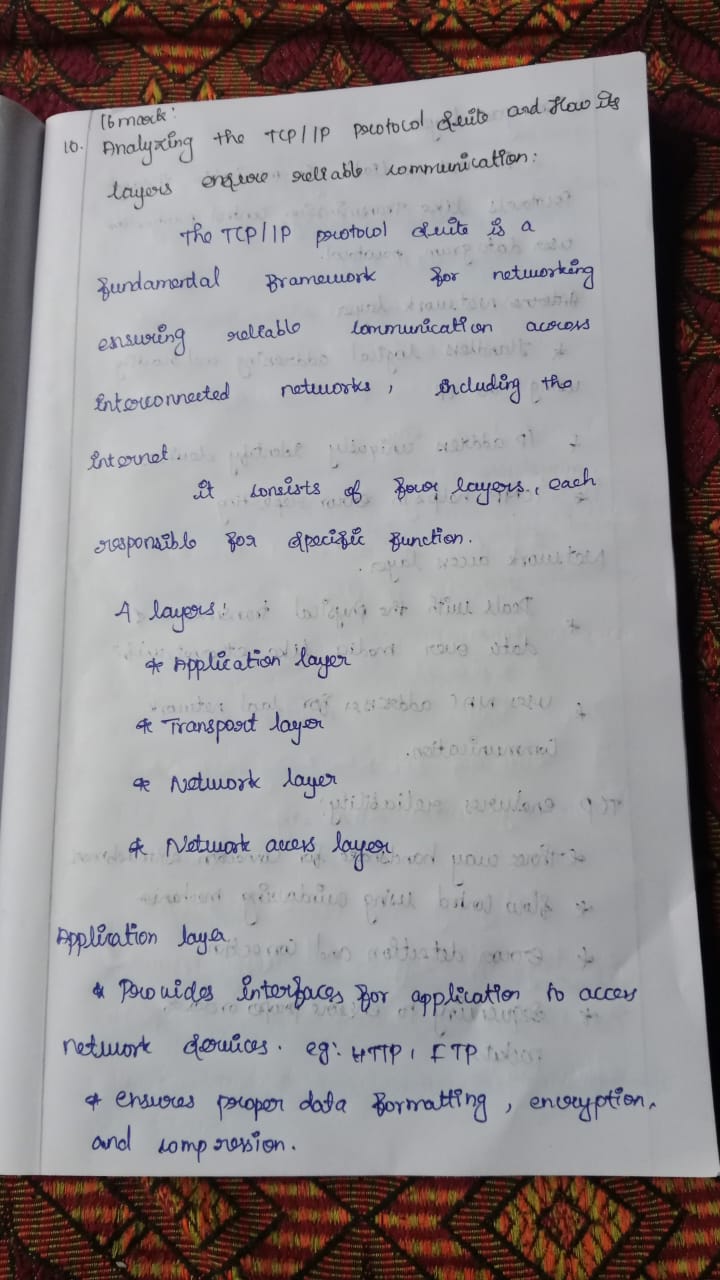 16 mark:
10. Analyzing the TCP/IP protocol suite and How its
layers ensure reliable communication:
The TCP/IP protocol suite is a
fundamental framework for networking
ensuring reliable communication across
interconnected networks, including the
internet.
it consists of four layers, each
responsible for specific function.
4 layers:
* Application layer
* Transport layer
* Network layer
* Network access layer
Application layer
* Provides interfaces for application to access
network services. eg: HTTP, FTP
* ensures proper data formatting, encryption,
and compression.